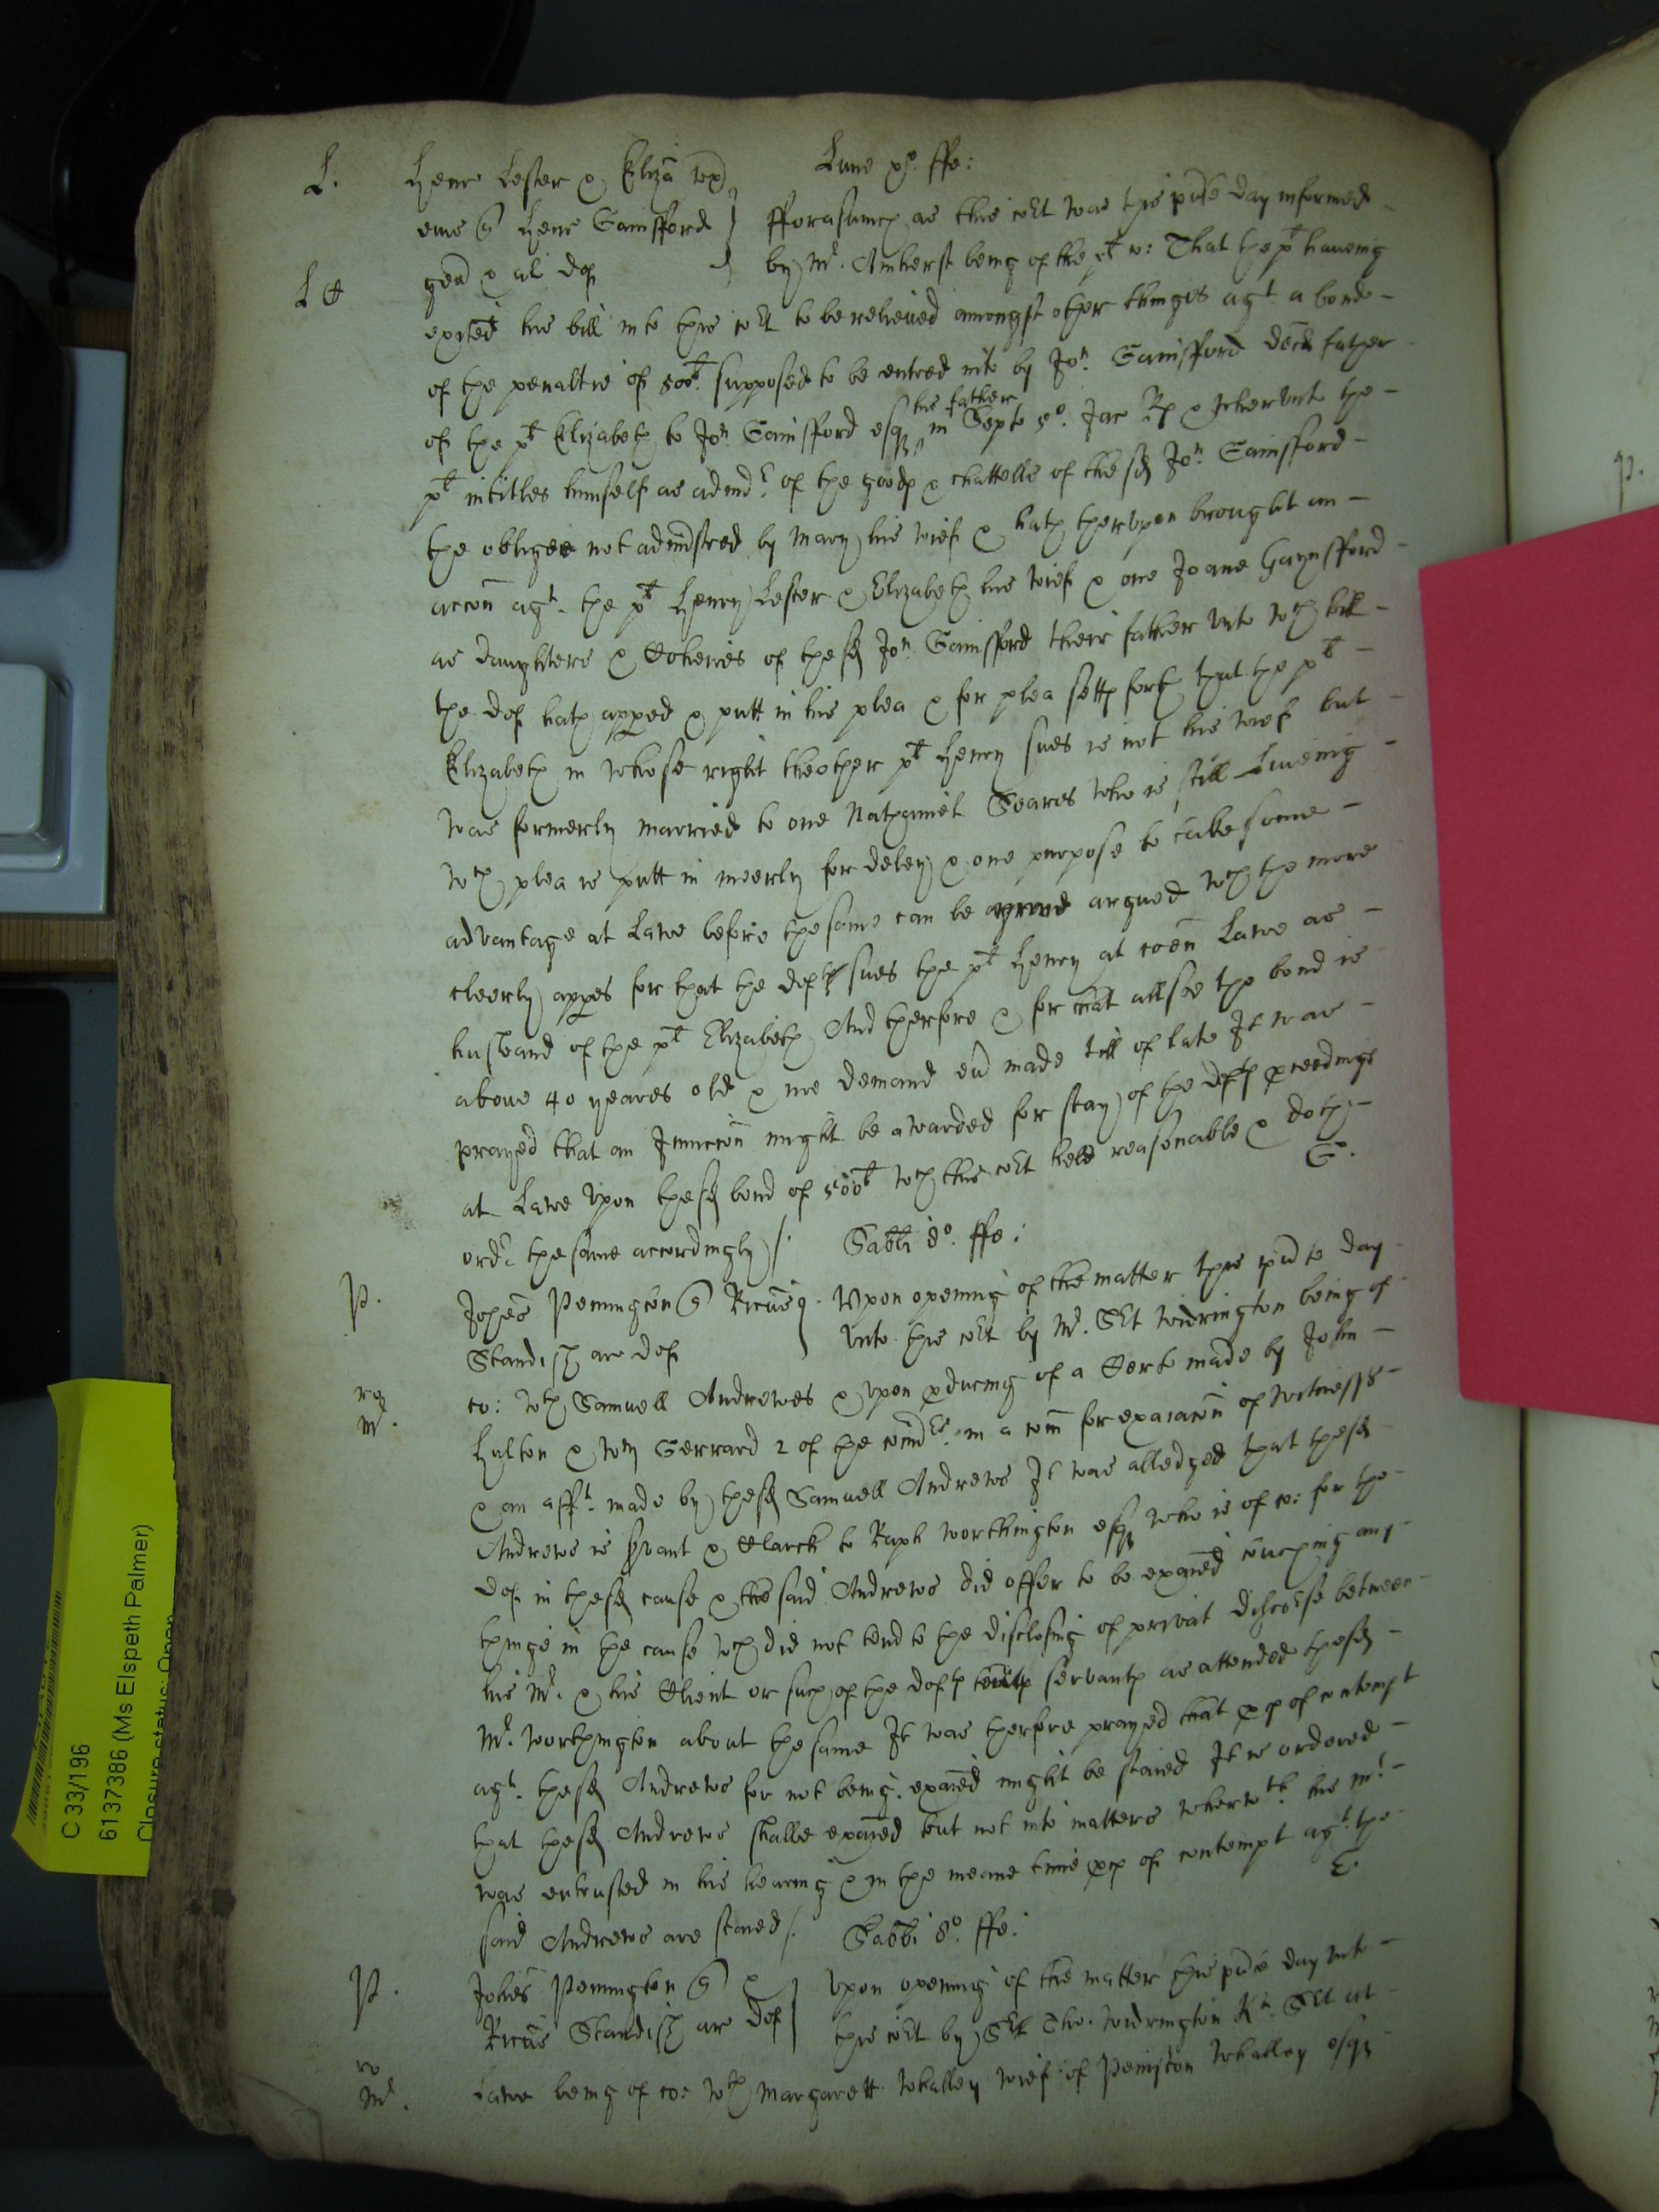 L. Henr Lester & Eliza ux Lune xo. ffe:
eius q Henr Gainsford } fforasmuch as this cort was this pnte day informed -
L H gen & al def by Mr. Amherst being of the plt co: That the plt haveing
exited his bill into this cort to be relieved amongst other things agt. a bond -
of the penaltie of 500l. supposed to be entred into by Jon. Gainsford decd father
of the plt Elizabeth to Jon Gainsford esq his father in Septe 5o. Jac Rs & wherunto the -
plt intitles himself as admr. of the goods & chattells of the sd Jon. Gainsford -
the obligee not administred by Mary his wief & hath therupon brought an -
accon agt. the plt Henry Lester & Elizabeth his wief & one Joane Gaynsford -
as daughters & Coheires of the sd Jon Gainsford their father unto wch bill -
the def hath apped & putt in his plea & for plea setth forth that the plt -
Elizabeth in whose right the other plt Henry sues is not his wief but -
was formerly married to one Nathaniel Seares who is still Liveing -
wch plea is putt in meerly for delay & one purpose to take some -
advantage at Lawe before the same can be argued wch the more
cleerly appes for that the deft sues the plt Henry at coen Lawe as -
husband of the plt Elizabeth And therfore & for that allsoe the bond is
above 40 yeares old & noe demand ever made till of late It was -
prayed that an Iniuccon might be awarded for stay of the defts pceedings
at Lawe upon the sd bond of 500l wch this cort held reasonable & doth -
ordr the same accordingly /. G.
Sabti 8o. ffe:
P. Johes Penington q Ricus Upon opening of the matter this pnte day
Standish ar def unto this cort by Mr. Sct Widrington being of
ro co: wth Samuell Andrewes & upon pducing of a Certe made by John -
Mr. Hulton & Wm Gerrard 2 of the comrs. in a com for exaiacon of witnesses -
& an afft. made by the sd Samuell Andrews It was alledged that the sd
Andrews is servant & Clarck to Raph Worthington esq who is of co: for the -
def in the sd cause & the said Andrews did offer to be exaied touching any
things in the cause wch did not tend to the disclosing of privat discorse between -
his Mr. & his Client or such of the defts servants as attended the sd -
Mr. Worthington about the same It was therfore prayed that ps of contempt
agt. the sd Andrews for not being exaied might be staied It is ordered -
that the sd Andrews shalbe exaied but not into matters wherwth. his Mr. -
was entrusted in his hearing & in the meane time ps of contempt agt. the
said Andrews are staied /. E.
Sabbi 8o. ffe:
P. Johes Penington q } Upon opening of the matter this pnte day unto -
Ricus Standish ar def this cort by Sct Tho. Widrington Kt. Sct at -
ro
Mr. Lawe being of co: wth Margarett Whalley wief of Peniston Whalley esq
C 33/196
6137386 (Ms Elspeth Palmer)
Closure status: Open